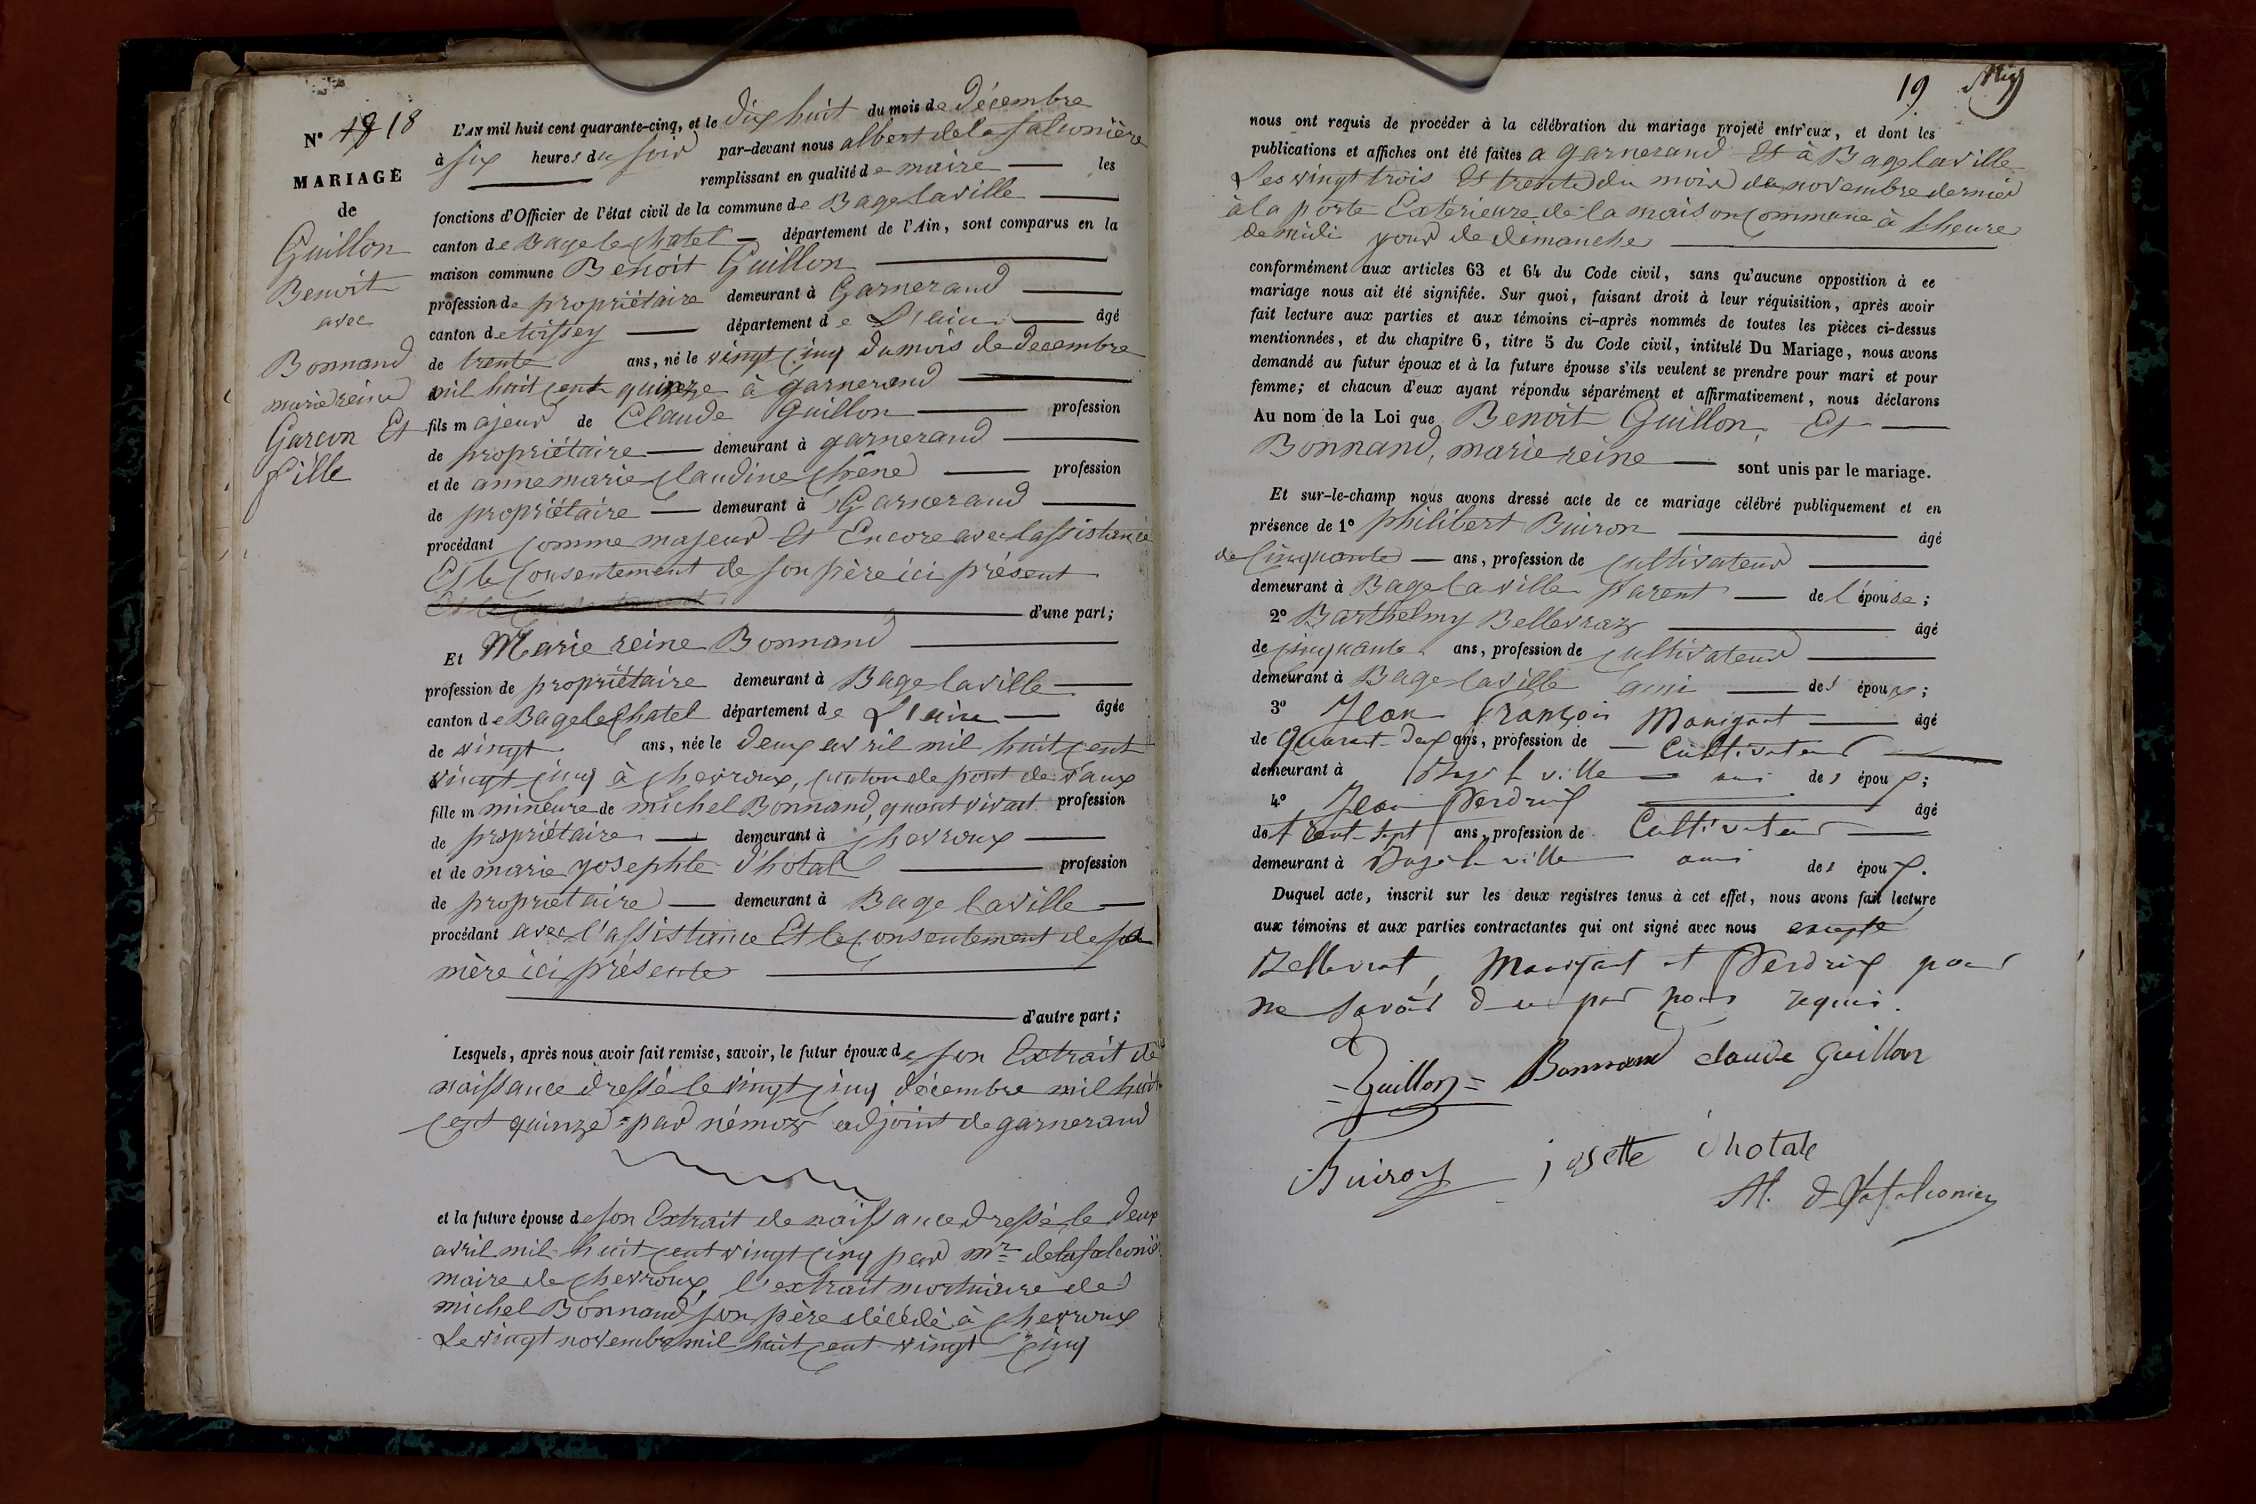 N° 18
MARIAGE
de
Guillon
Benoit
avec
Bonnand
marie reine
Garcon Et
fille
L'AN mil huit cent quarante-cinq, et le dix huit du mois de Décembre
à six heures du soir par-devant nous albert de la falconière
remplissant en qualité de maire les
fonctions d'Officier de l'état civil de la commune de Bage laville
canton de Bage le chatel département de l'Ain, sont comparus en la
maison commune Benoit Guillon
profession de propriétaire demeurant à Garnerand
canton de toissey département de L'ain âgé
de trente ans, né le vingt cinq du mois de Decembre
mil huit cent quinze à garnerand
fils majeur de Claude Guillon profession
de propriétaire demeurant à garnerand
et de anne marie claudine chêne profession
de propriétaire demeurant à Garnerand
procédant comme majeur Et Encore avec lassistance
Et le consentement de son père ici présent
d'une part;
Et Marie reine Bonnand
profession de propriétaire demeurant à Bage laville
canton de Bage le Chatel département de L'ain âgée
de vingt ans, née le deux avril mil huit cent
vingt cinq à chevroux, canton de pont de vaux
fille m mineure de michel Bonnand, quant vivant profession
de propriétaire demeurant à chevroux
et de marie yosephte d'hotal profession
de propriétaire demeurant à Bage laville
procédant avec l'assistance Et le consentement de sa
mère ici présente
d'autre part;
Lesquels, après nous avoir fait remise, savoir, le futur époux de son Extrait de
naissance dressé le vingt cinq décembre mil huit
cent quinze par némoz adjoint de garnerand
et la future épouse de son Extrait de naissance dressé le deux
avril mil huit cent vingt cinq par mr delafalconiè
maire de chevroux, l'extrait mortuaire de
michel Bonnand son père décédé à chevroux
Le vingt novembre mil huit cent vingt cinq
19
nous ont requis de procéder à la célébration du mariage projeté entr'eux, et dont les
publications et affiches ont été faites a garnerand Et à Bage laville
Les vingt trois Et trente du mois de novembre dernier
à la porte Extérieure de la maison commune à l'heure
de midi your de dimanche
conformément aux articles 63 et 64 du Code civil, sans qu'aucune opposition à ce
mariage nous ait été signifiée. Sur quoi, faisant droit à leur réquisition, après avoir
fait lecture aux parties et aux témoins ci-après nommés de toutes les pièces ci-dessus
mentionnées, et du chapitre 6, titre 5 du Code civil, intitulé Du Mariage, nous avons
demandé au futur époux et à la future épouse s'ils veulent se prendre pour mari et pour
femme; et chacun d'eux ayant répondu séparément et affirmativement, nous déclarons
Au nom de la Loi que Benoit Guillon, Et
Bonnand, marie reine sont unis par le mariage.
Et sur-le-champ nous avons dressé acte de ce mariage célébré publiquement et en
présence de 1° philibert Buiron âgé
de Cinquante ans, profession de cultivateur
demeurant à Bage laville parent de l'épouse;
2° Barthelmy Bellevraz âgé
de cinquante ans, profession de cultivateur
demeurant à Bage laville ami des époux;
3° Jean François Manigant âgé
de quarant-deux ans, profession de Cultivateur
demeurant à Bagé la ville ami des époux;
4° Jean Perdrix âgé
de trent-sept ans, profession de Cultivateur
demeurant à Bagé la ville ami des époux.
Duquel acte, inscrit sur les deux registres tenus à cet effet, nous avons fait lecture
aux témoins et aux parties contractantes qui ont signé avec nous excepté
Bellevrat, Manigant et Perdrix pour
ne savoir de ce par nous requis.
Guillon Bonnand claude Guillon
Buiron josette dhotale
Al. de Lafalconière